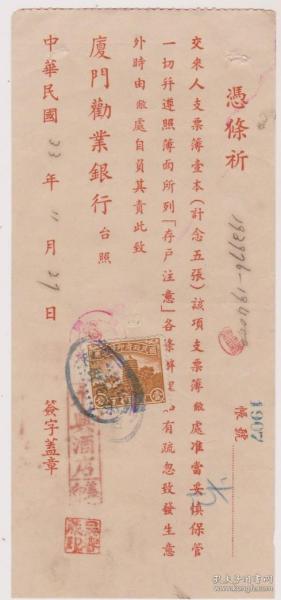 憑條祈
193976-194000
交來人支票簿壹本(計念五張)該項支票簿敝處准當妥愼保管
一切幷遵照簿面所列「存戶注意」各條辦理如有疏忽致發生意
外時由敝處自負其責此致
帳號
1907
廈門勸業銀行 台照
中華民國 23 年 11 月 29 日
簽字蓋章
酒店